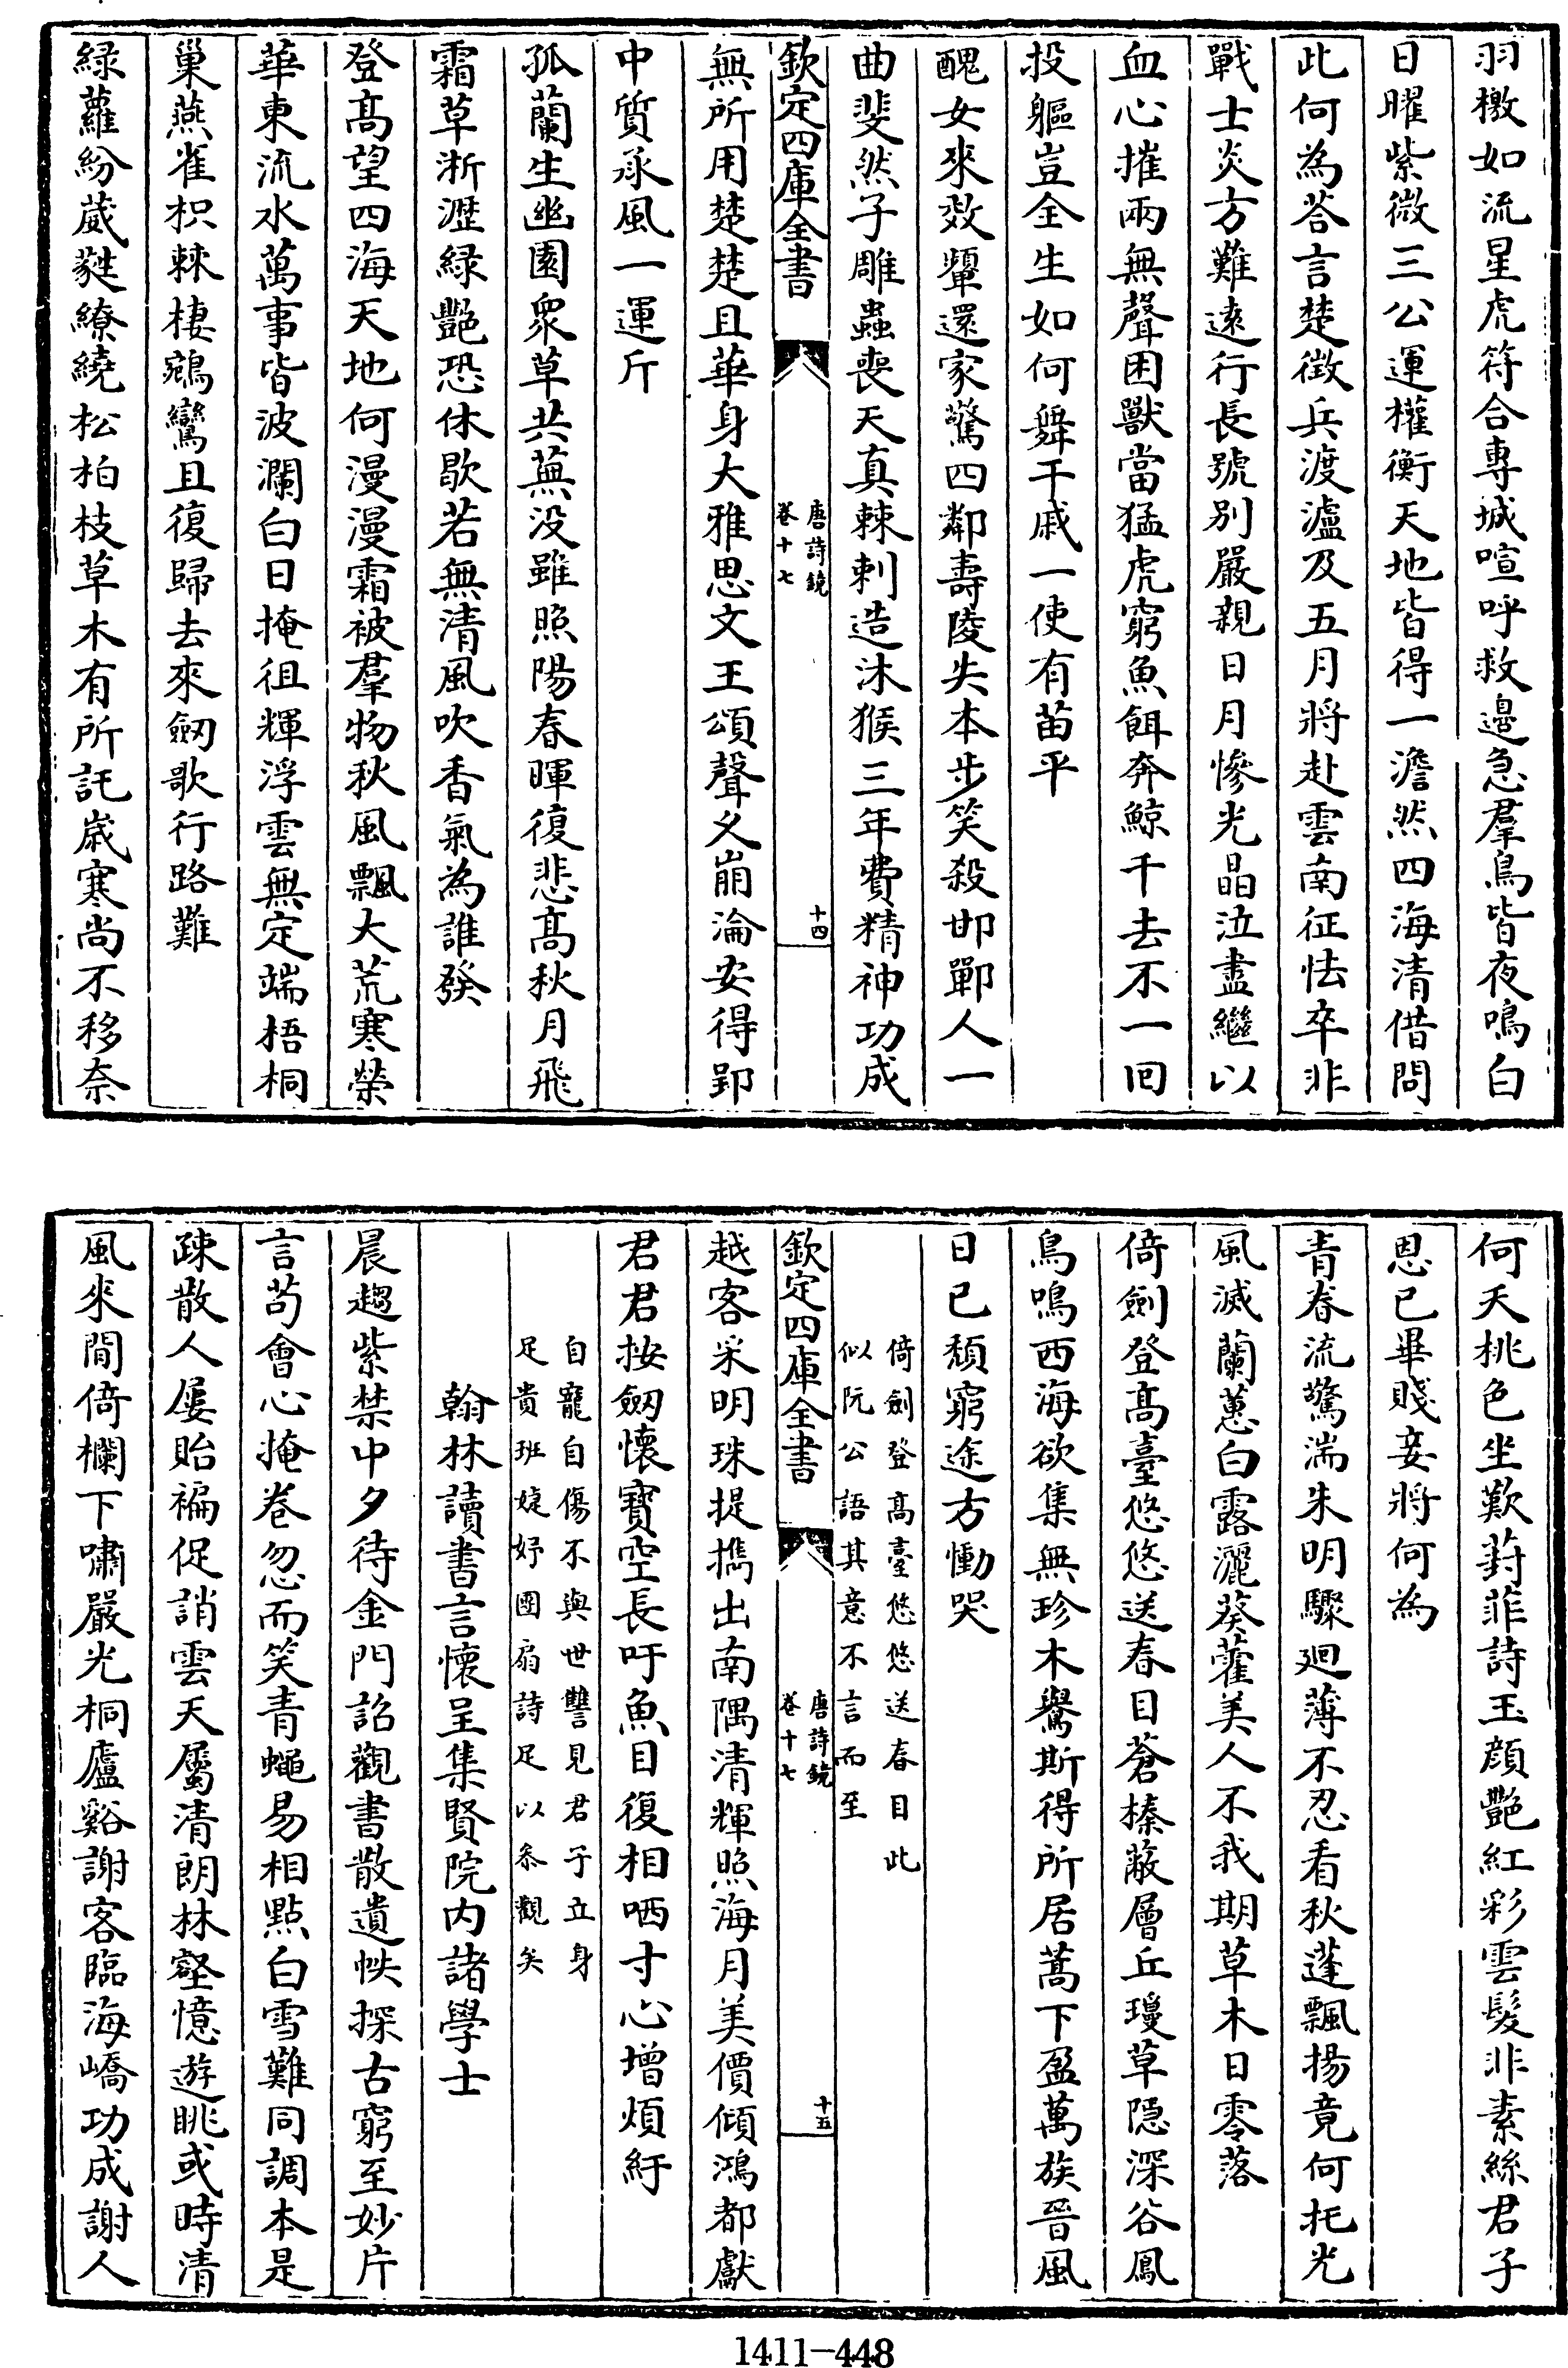 羽檄如流星虎符合專城喧呼救邉急羣鳥皆夜鳴白
日曜紫微三公運權衡天地皆得一澹然四海清借問
此何為荅言楚徴兵渡瀘及五月將赴雲南征怯卒非
戰士炎方難逺行長號別嚴親日月慘光晶泣盡繼以
血心摧兩無聲困獸當猛虎窮魚餌奔鯨千去不一回
投軀豈全生如何舞干戚一使有苗平
醜女來效顰還家驚四鄰壽陵失本步笑殺邯鄲人一
曲斐然子雕蟲喪天真棘刺造沐猴三年費精神功成
欽定四庫全書
唐詩鏡
卷十七
十四
無所用楚楚且華身大雅思文王頌聲乆崩淪安得郢
中質承風一運斤
孤蘭生幽園衆草共蕪没雖照陽春暉復悲髙秋月飛
霜草淅瀝緑艷恐休歇若無清風吹香氣為誰發
登髙望四海天地何漫漫霜被羣物秋風飄大荒寒榮
華東流水萬事皆波瀾白日掩徂輝浮雲無定端梧桐
巢燕雀枳棘棲鵷鸞且復歸去來劒歌行路難
緑蘿紛葳蕤繚繞松柏枝草木有所託歳寒尚不移奈
何夭桃色坐歎葑菲詩玉顔艷紅彩雲髮非素絲君子
恩已畢賤妾將何為
青春流驚湍朱明驟廻薄不忍看秋蓬飄揚竟何托光
風滅蘭蕙白露灑葵藿美人不我期草木日零落
倚劍登髙臺悠悠送春目蒼榛蔽層丘瓊草隱深谷鳳
鳥鳴西海欲集無珍木鸒斯得所居蒿下盈萬族晉風
日已頽窮途方慟哭
倚劍登髙臺悠悠送春目此
似阮公語其意不言而至
欽定四庫全書
唐詩鏡
卷十七
十五
越客采明珠提擕出南隅清輝照海月美價傾鴻都獻
君君按劒懷寶空長吁魚目復相哂寸心增煩紆
自寵自傷不與世讐見君子立身
足貴班婕妤團扇詩足以叅觀矣
翰林讀書言懷呈集賢院内諸學士
晨趨紫禁中夕待金門詔觀書散遺帙探古窮至妙片
言茍會心掩卷忽而笑青蠅易相點白雪難同調本是
疎散人屢貽褊促誚雲天屬清朗林壑憶遊眺或時清
風來閒倚欄下嘯嚴光桐廬谿謝客臨海嶠功成謝人
1411-448